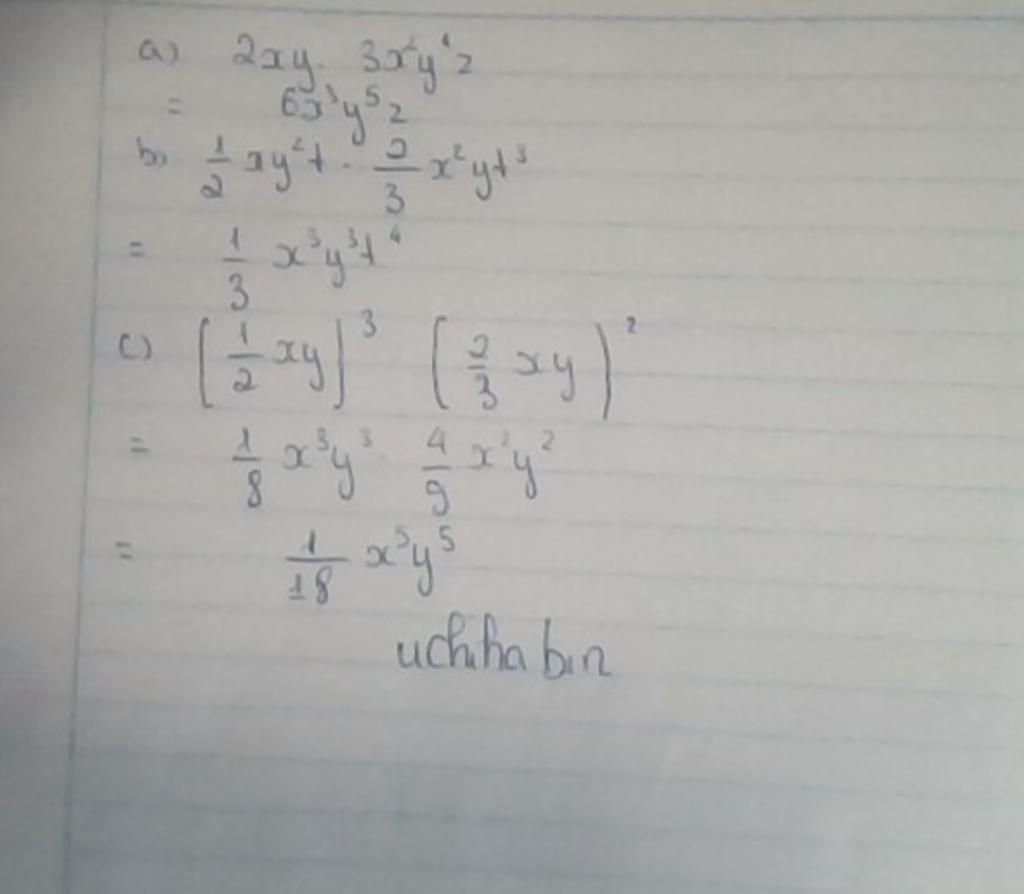 a) 2xy. 3x²y⁴z
= 6x³y⁵z
b) 1/2 xy²t . 2/3 x²yt³
= 1/3 x³y³t⁴
c) [1/2 xy]³ (2/3 xy)²
= 1/8 x³y³. 4/9 x²y²
= 1/18 x⁵y⁵
uchiha bin